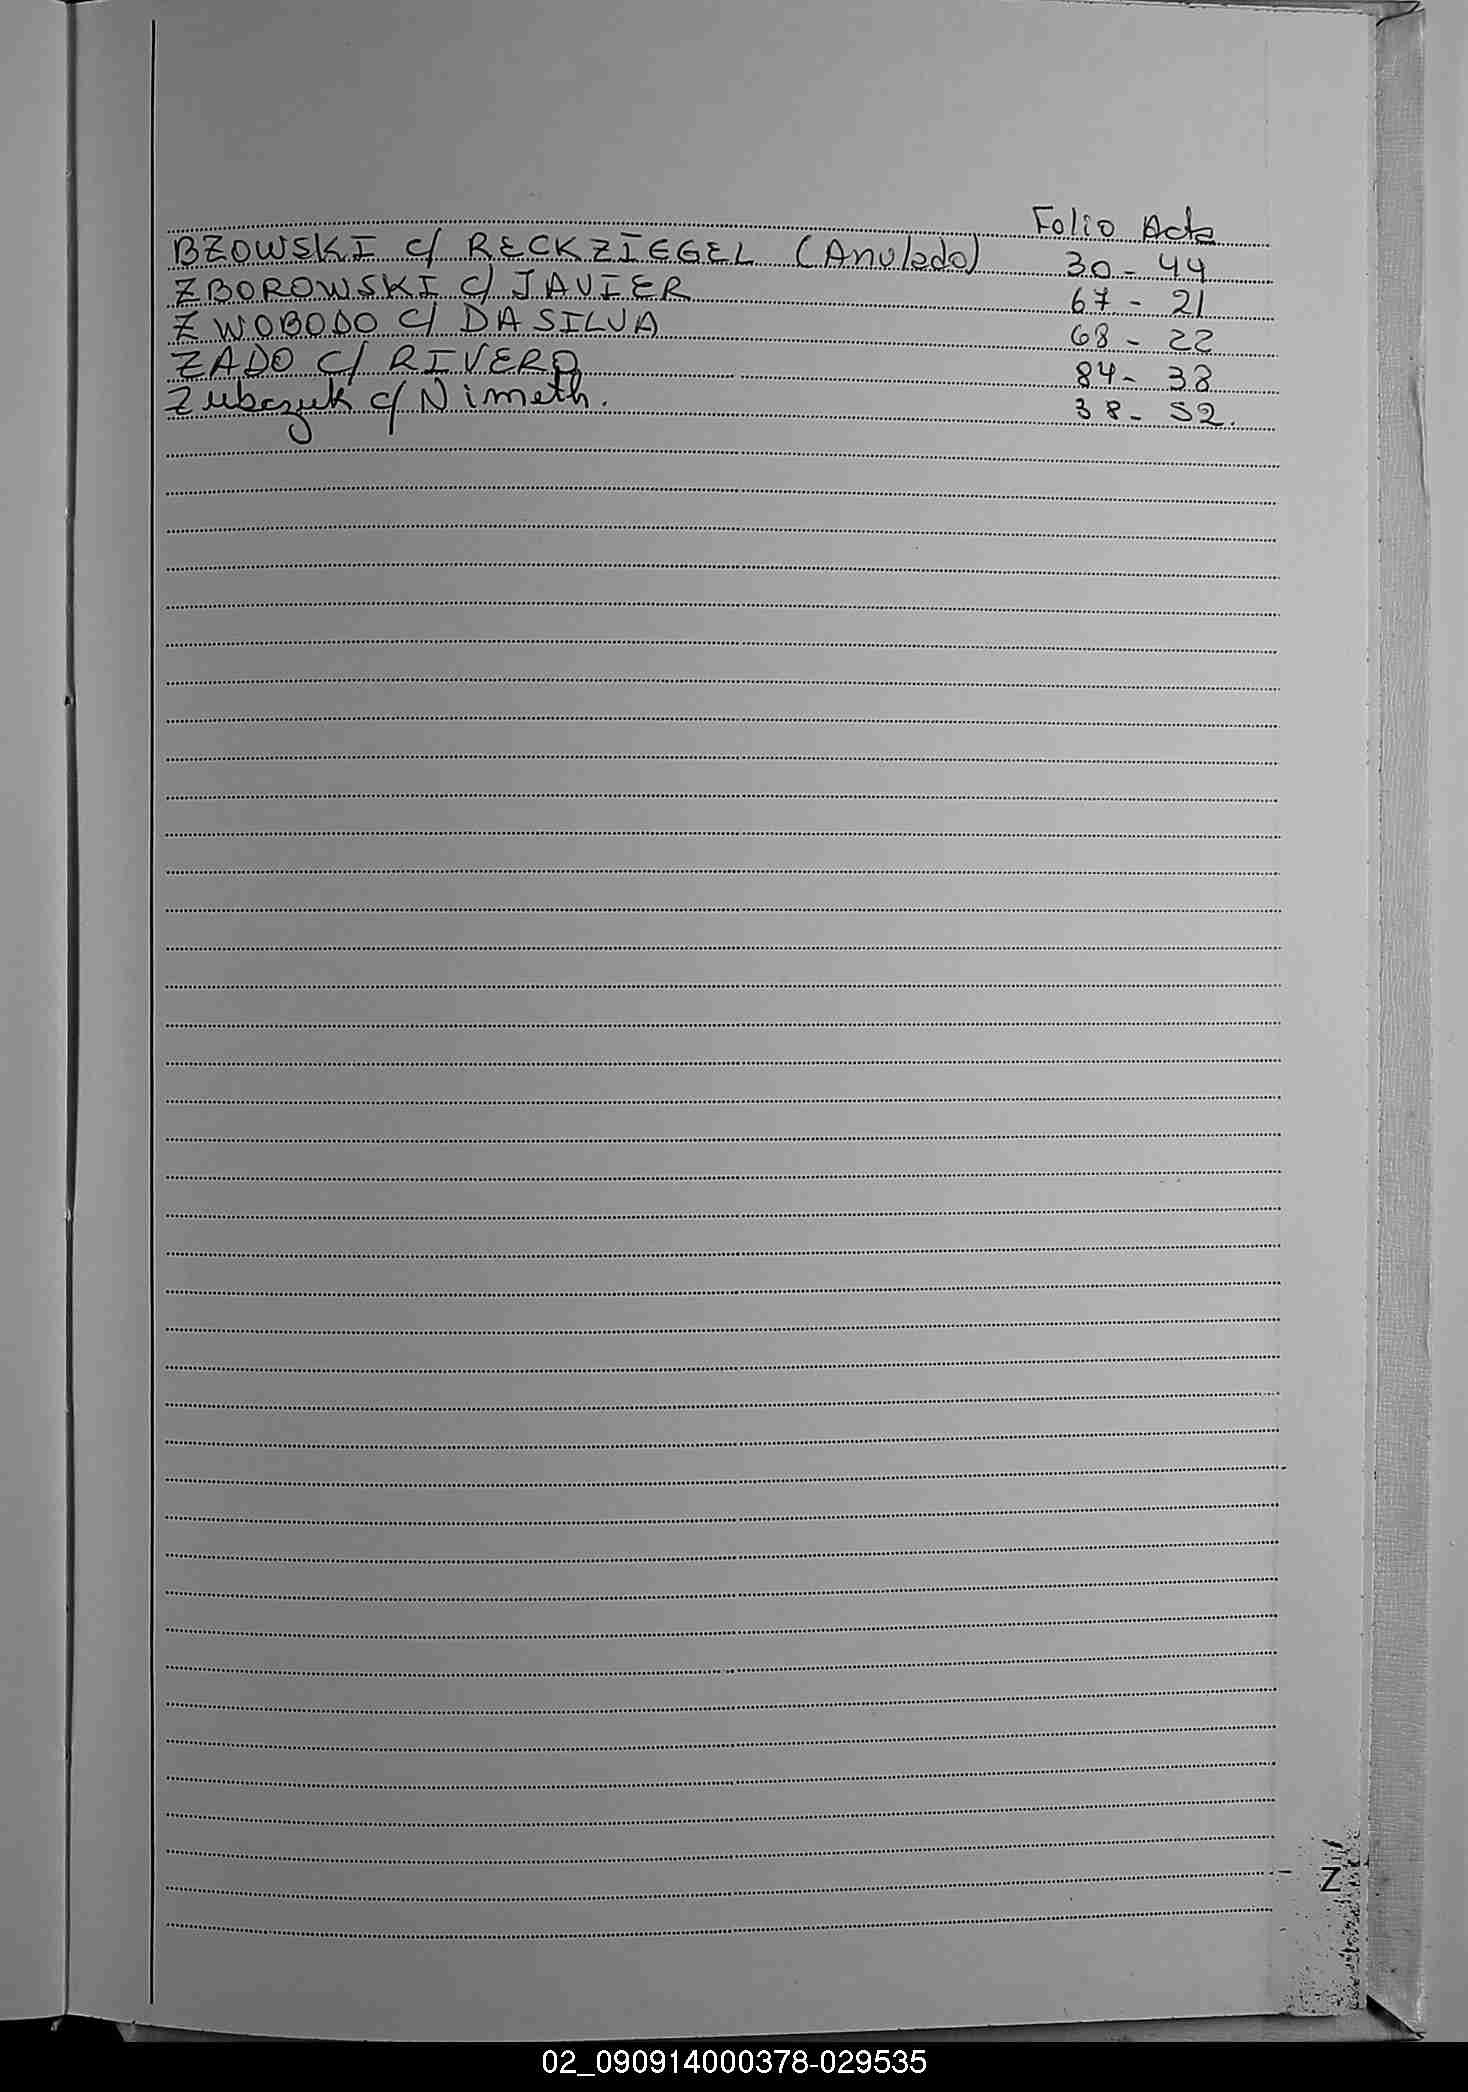 Folio Acta
BZOWSKI c/ RECKZIEGEL (Anulado) 30 - 44
ZBOROWSKI c/ JAVIER 67 - 21
ZWOBODO c/ DA SILVA 68 - 22
ZADO c/ RIVERO 84 - 38
Zubczuk c/ Nimeth. 38 - 52.
Z
02_090914000378-029535